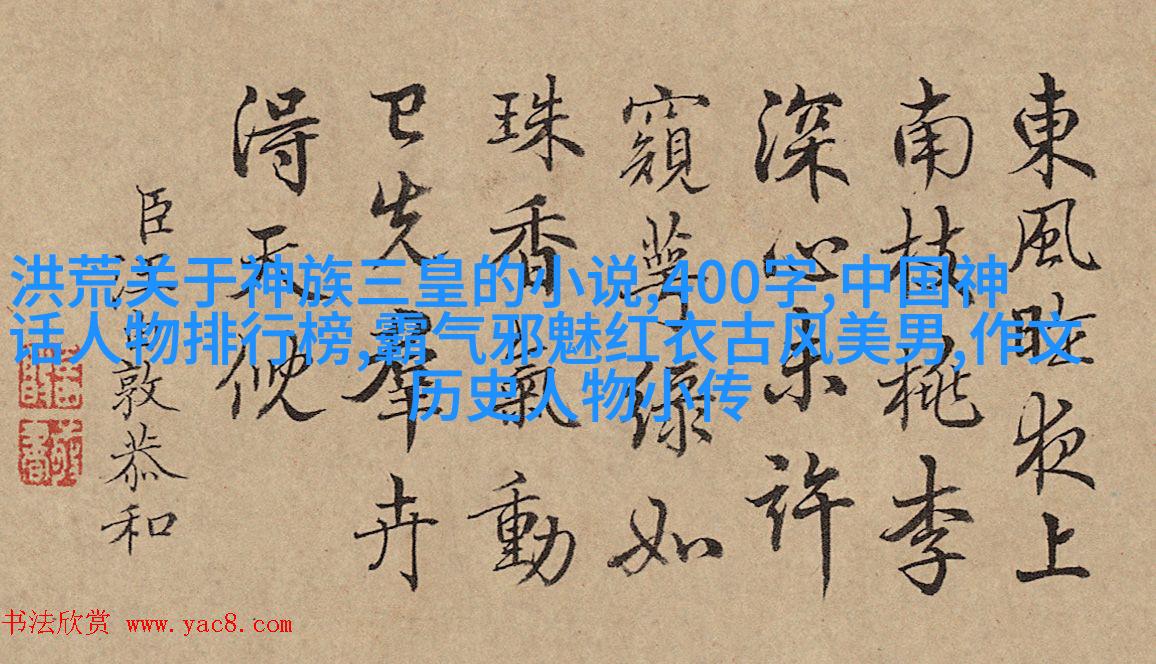 東風昨夜上
南枝桃李
深心未許
窺萼綠如
珠香氣動
已先羣卉
得天倪
臣汪由敦恭和
洪荒关于神族三皇的小说,400字,中国神
话人物排行榜,霸气邪魅红衣古风美男,作文
历史人物小传
书法欣赏 www.yac8.com